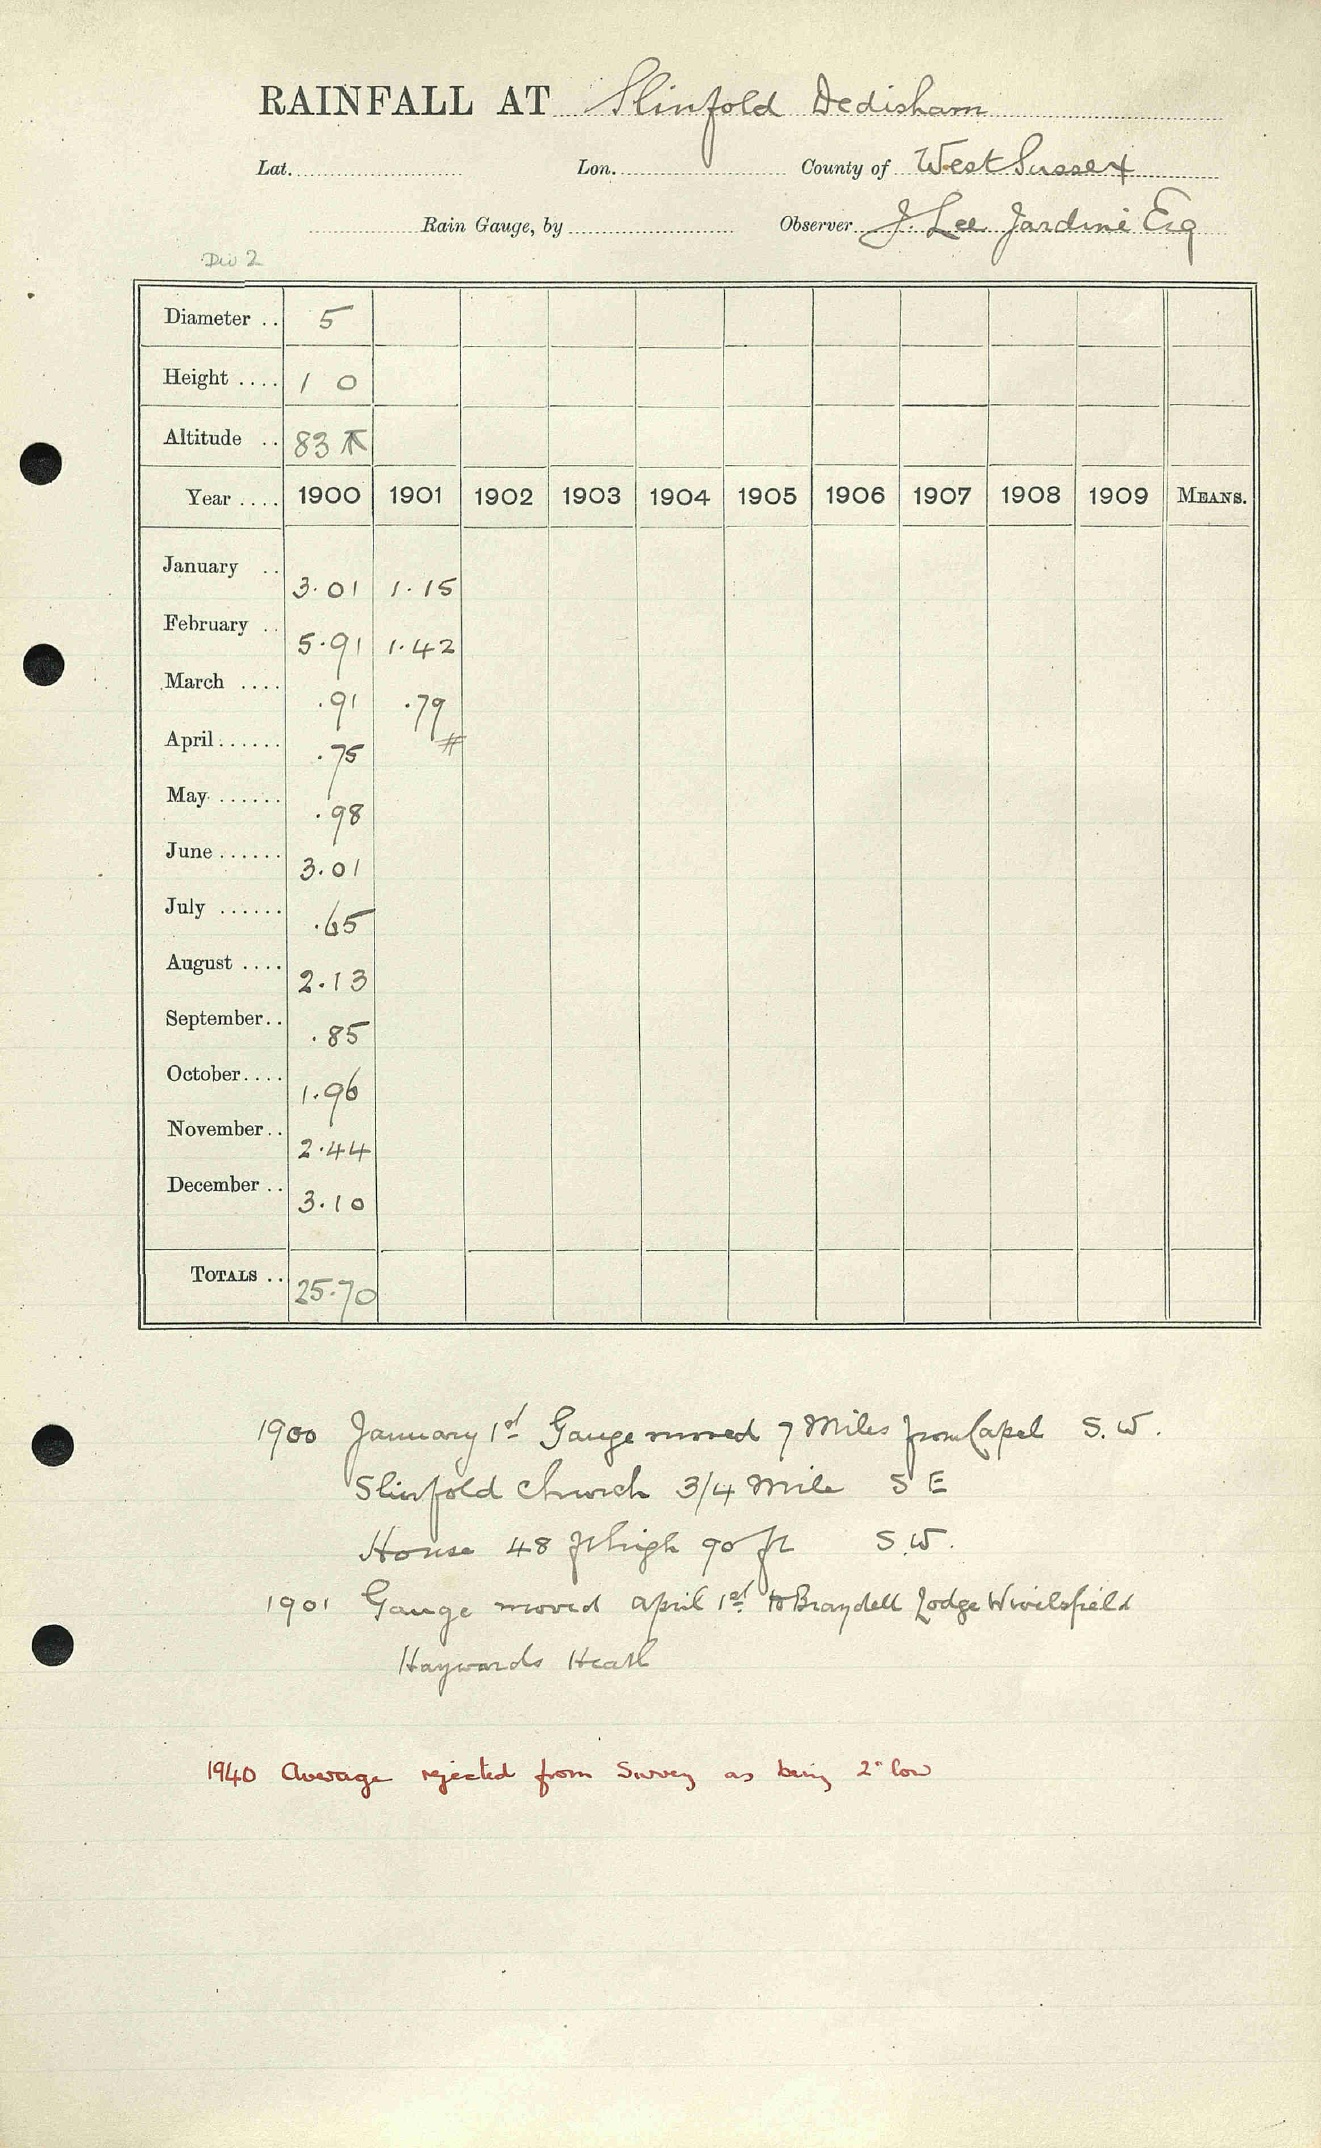 RAINFALL AT Slinfold Dedisham
Lat. Lon. County of West Sussex
Rain Gauge, by Observer J. Lee Jardine Esq
Div 2
Diameter .. 5
Height .... 1 0
Altitude .. 83
Year .... 1900 1901 1902 1903 1904 1905 1906 1907 1908 1909 MEANS.
January .. 3.01 1.15
February .. 5.91 1.42
March .... .91 .79
April ...... .75 #
May ...... .98
June ...... 3.01
July ...... .65
August .... 2.13
September .. .85
October .... 1.96
November .. 2.44
December .. 3.10
TOTALS .. 25.70
1900 January 1st Gauge moved 7 Miles from Capel S. W.
Slinfold Church 3/4 Mile S E
House 48 ft high 90 ft S.W.
1901 Gauge moved April 1st to Lodge Wivelsfield
Haywards Heath
1940 Average rejected from Survey as being 2" low